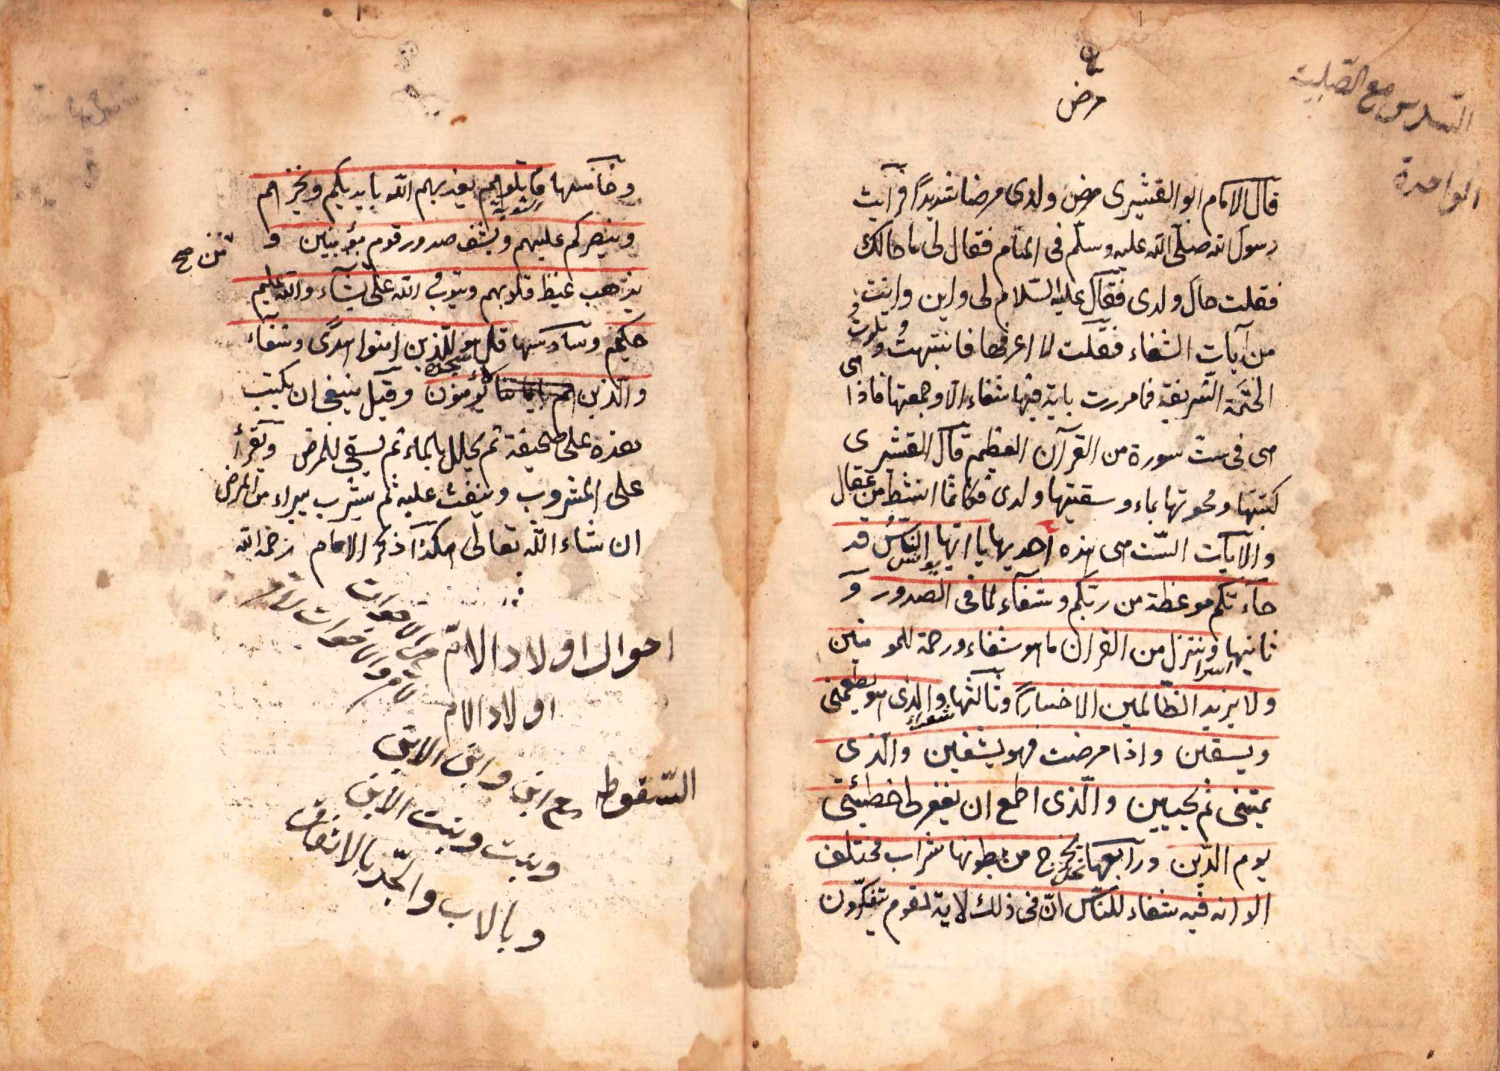 مرض
السدس مع الصلبية
الواحدة
قال الامام ابو القشيرى مرض ولدى مرضا شديدًا فرأيت
رسول الله صلى الله عليه وسلم فى المنام فقال لى ما حالك
فقلت حال ولدى فقال عليه السلام لى واين وانت
من آيات الشفاء فقلت لا اعرفها فانتبهت وتلوت
الختمة الشريفة فما مررت باية فيها شفاء الا وجمعتها فاذا هى
هى فى ست سورة من القرآن العظيم قال القشيرى
كتبتها ومحوتها بماء وسقيتها ولدى فكانما انشط من عقال
والآيات الست هى هذه أحديها يا ايها الناس قد
يونس
جاءتكم موعظة من ربكم وشفاء لما فى الصدور و
ثانيها وننزل من القرآن ما هو شفاء ورحمة للمومنين
اسرا
ولا يزيد الظالمين الا خسارًا وثالثها والذى هو يطعمنى
شعراء
ويسقين واذا مرضت فهو يشفين والذى
يميتنى ثم يحيين والذى اطمع ان يغفر لى خطيئتى
يوم الدين ورابعها يخرج من بطونها شراب مختلف
نحل
الوانه فيه شفاء للناس ان فى ذلك لاية لقوم يتفكرون
وخامسها قاتلوهم يعذبهم الله بايديكم ويخزهم
سورة
وينصركم عليهم ويشف صدور قوم مؤمنين و
يذهب غيظ قلوبهم ويتوب الله على من يشاء والله عليم
من صح
حكيم وسادسها قل هو للذين امنوا هدى وشفاء
سجده
والذين لا يؤمنون وقيل ينبغى ان يكتب
هذه على صحيفة ثم يحلل بالماء ثم يسقى للمرض ويقرأ
على المشروب وينفث عليه ثم يشرب يبراء من المرض
ان شاء الله تعالى هكذا ذكر الامام رحمه الله
احوال اولاد الام
من الاخوات
لام والاخوات
اولاد الام
السقوط
مع ابن وابن الابن
وبنت وبنت الابن
وبالاب والجد بالاتفاق